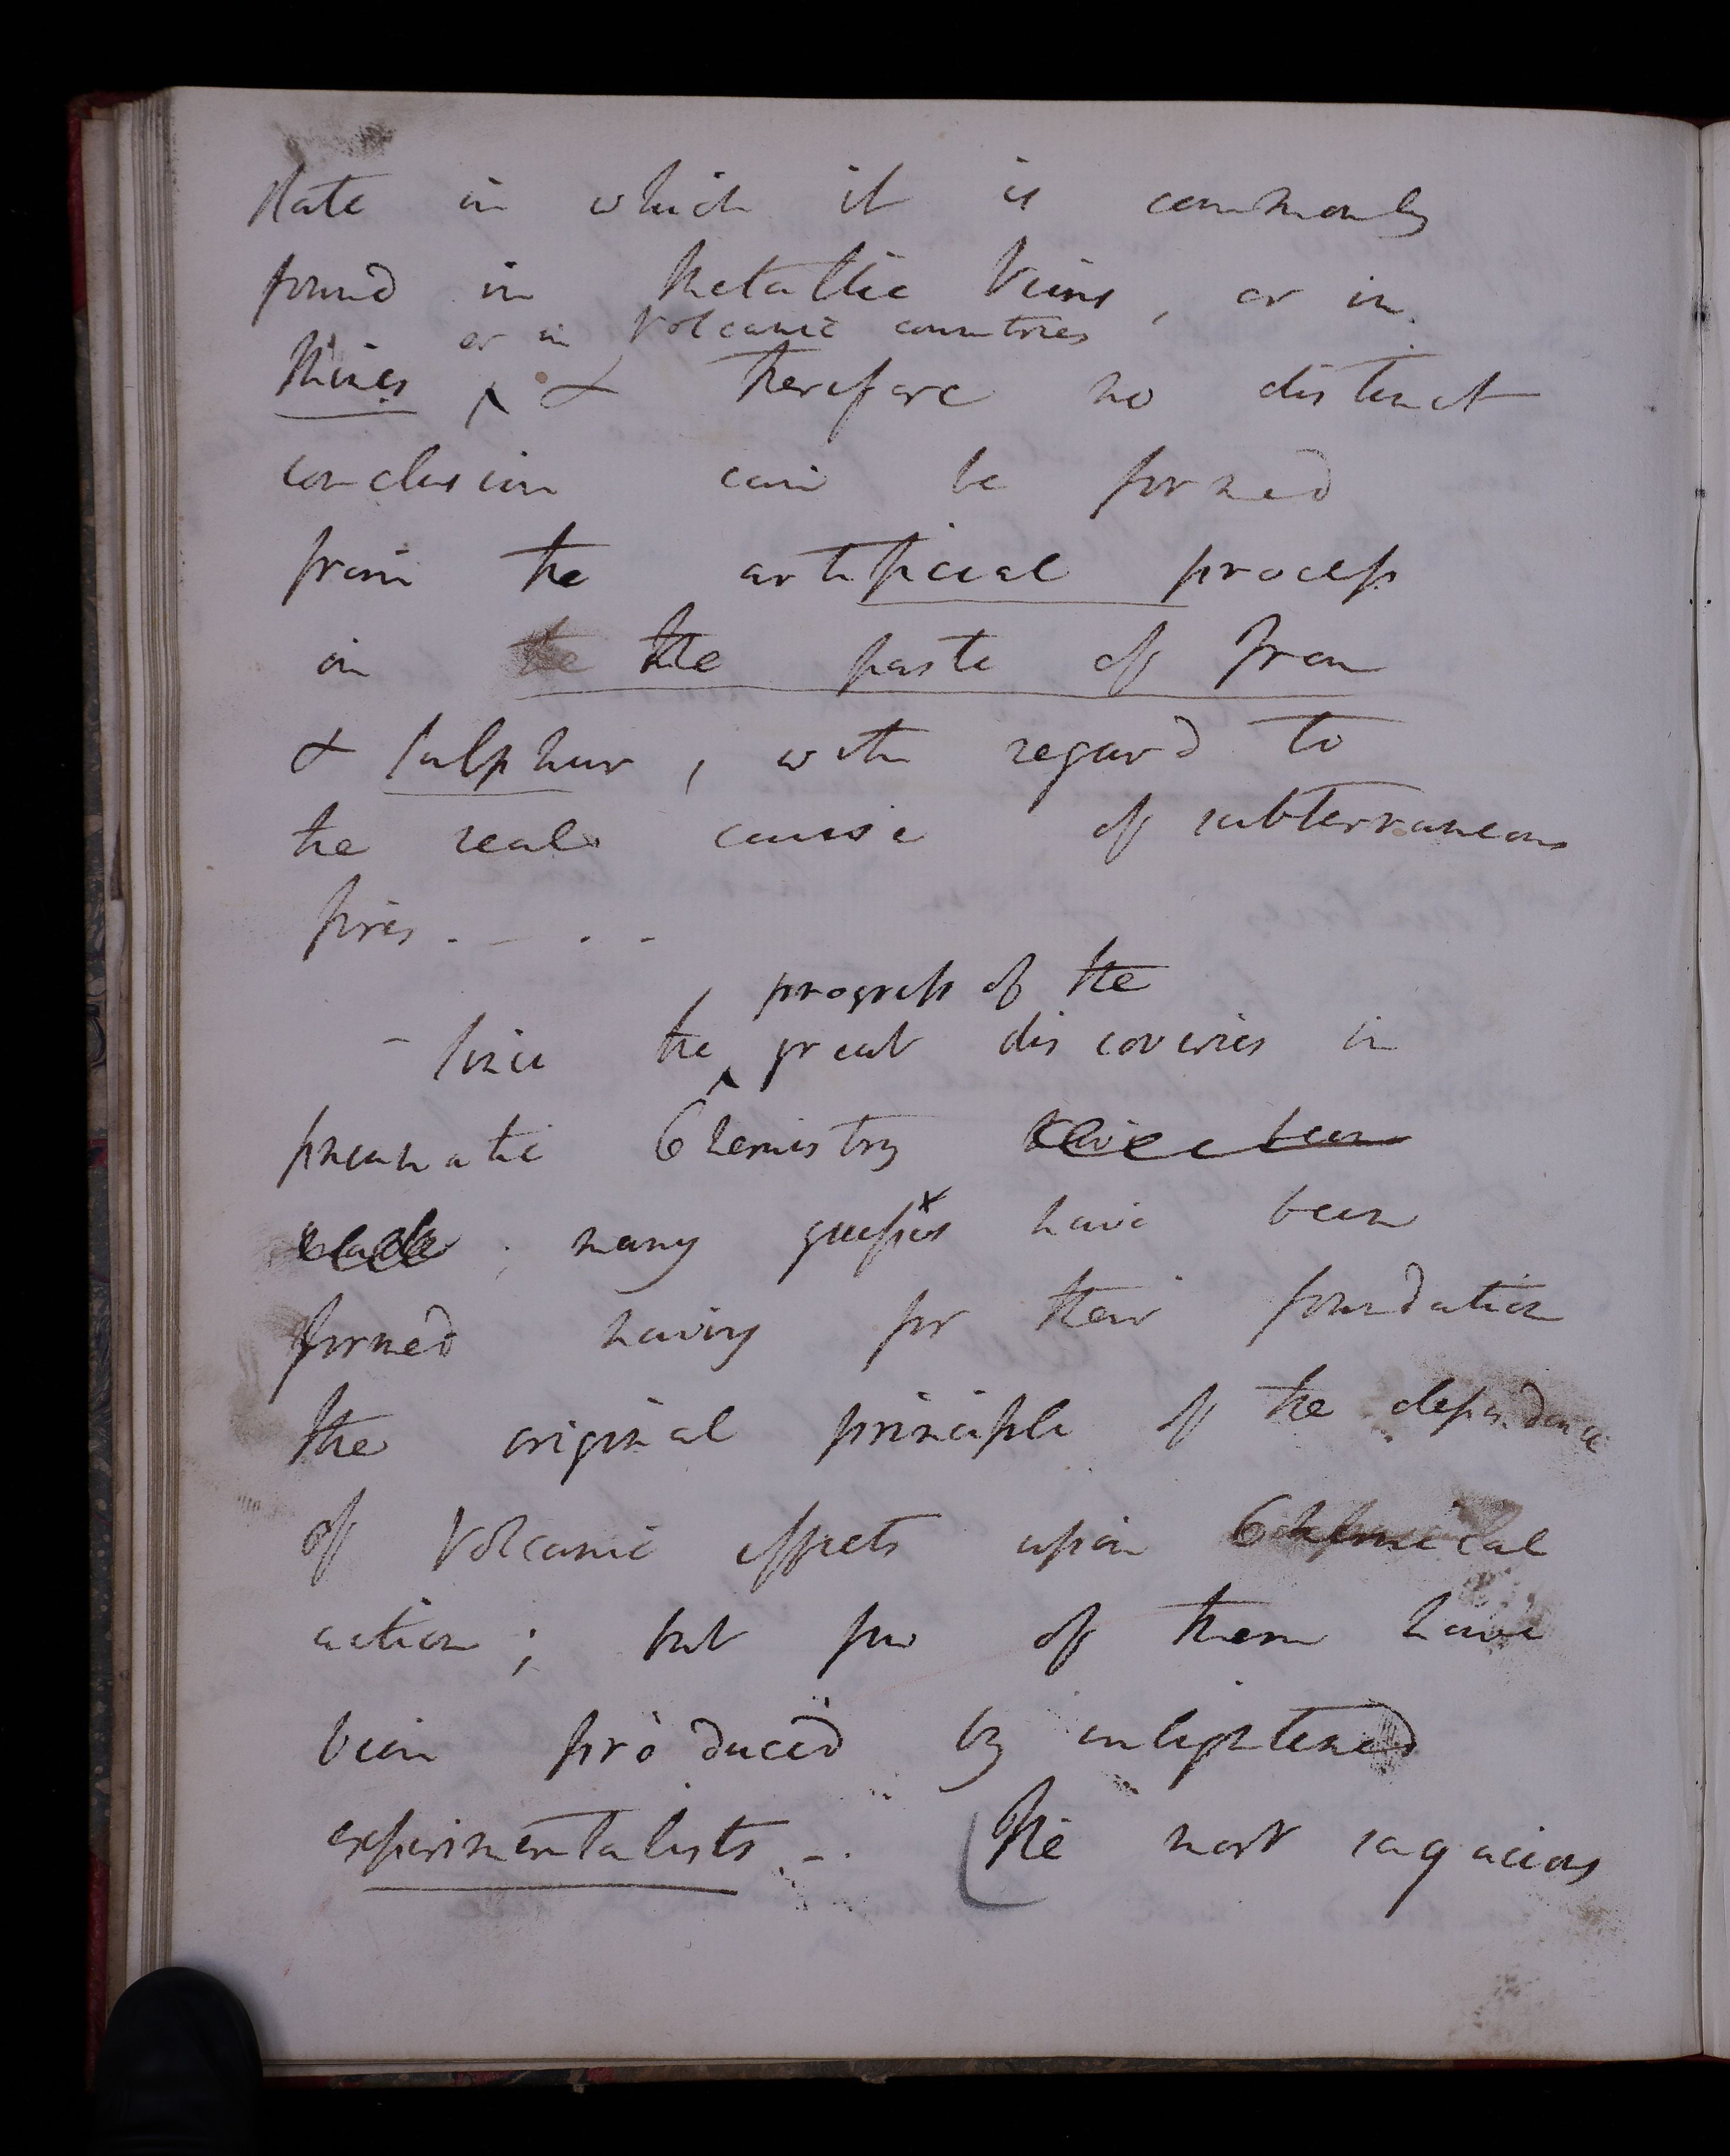 state in which it is commonly
found in Metallic Veins, or in
or in Volcanic countries
Mines, & therefore no distinct
conclusion can be formed
from the artificial process
in the the paste of Iron
& Sulphur, with regard to
the real cause of subterraneous
fires. — . -
progress of the
- Since the great discoveries in
pneumatic Chemistry have been
made, many guesses have been
formed having for their foundation
the original principle of the dependence
of Volcanic effects upon Chemical
action; but few of them have
been produced by enlightened
experimentalists -. The most sagacious